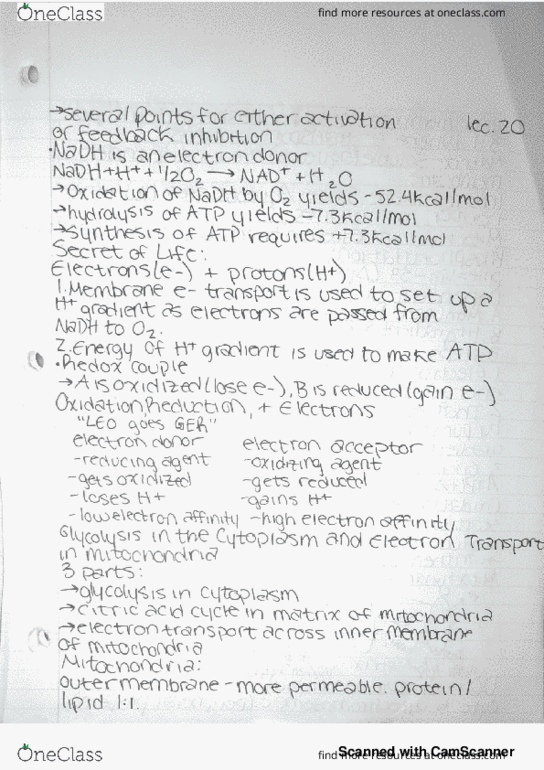 OneClass
find more resources at oneclass.com
→several points for either activation
lec. 20
or feedback inhibition
•NaDH is an electron donor
NaDH+H⁺+½O₂ → NAD⁺ + H₂O
→Oxidation of NaDH by O₂ yields -52.4kcal/mol
→hydrolysis of ATP yields -7.3kcal/mol
→synthesis of ATP requires +7.3kcal/mol
Secret of Life:
Electrons(e-) + protons(H+)
1. Membrane e- transport is used to set up a
H⁺ gradient as electrons are passed from
NaDH to O₂.
2. Energy of H⁺ gradient is used to make ATP
•Redox couple
→A is oxidized(lose e-), B is reduced(gain e-)
Oxidation, Reduction, + Electrons
"LEO goes GER"
electron donor electron acceptor
-reducing agent -oxidizing agent
-gets oxidized -gets reduced
-loses H+ -gains H+
-low electron affinity -high electron affinity
Glycolysis in the Cytoplasm and Electron Transport
in mitochondria
3 parts:
→glycolysis in cytoplasm
→citric acid cycle in matrix of mitochondria
→electron transport across inner membrane
of mitochondria
Mitochondria:
outer membrane - more permeable. protein/
lipid 1:1.
OneClass
find more resources at oneclass.com
Scanned with CamScanner